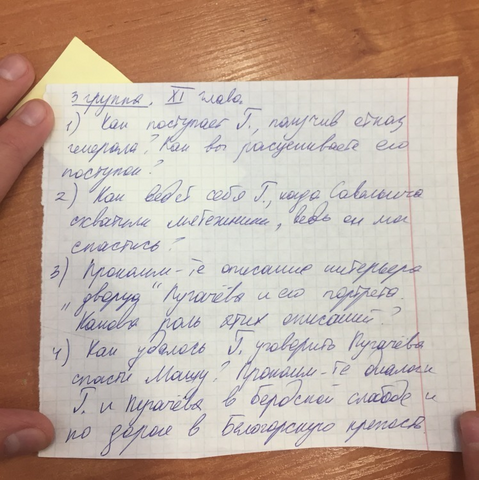 3 группа. XI глава.
1) Как поступает Г., получив отказ
генерала? Как вы расцениваете его
поступок?
2) Как ведёт себя Г., когда Савельича
схватили мятежники, ведь он мог
спастись?
3) Прокомм-те описание интерьера
"дворца" Пугачёва и его портрета.
Какова роль этих описаний?
4) Как удалось Г. уговорить Пугачёва
спасти Машу? Прокомм-те диалоги
Г. и Пугачёва в Бердской слободе и
по дороге в Белогорскую крепость